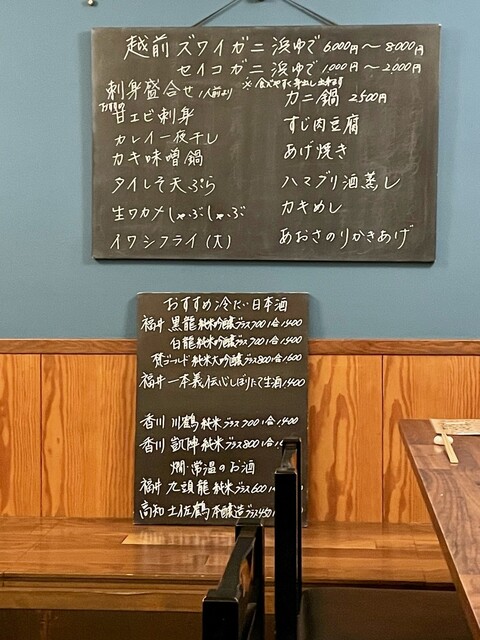 越前 ズワイガニ 浜ゆで 6000円〜8000円
セイコガニ 浜ゆで 1000円〜2000円
※ 食べやすく身出し出来ます
刺身盛合せ 1人前より
おすすめ
甘エビ刺身
カレイ一夜干し
カキ味噌鍋
タイしそ天ぷら
生ワカメしゃぶしゃぶ
イワシフライ(大)
カニ鍋 2500円
すじ肉豆腐
あげ焼き
ハマグリ酒蒸し
カキめし
あおさのりかきあげ
おすすめ冷たい日本酒
福井 黒龍 純米吟醸 グラス700 1合1400
白龍 純米吟醸 グラス700 1合1400
梵ゴールド 純米大吟醸 グラス800 1合1600
福井 一本義 伝心しぼりたて生酒 1400
香川 川鶴 純米 グラス700 1合1400
香川 凱陣 純米 グラス800 1合
燗・常温のお酒
福井 九頭龍 純米 グラス600
高知 土佐鶴 本醸造 グラス450